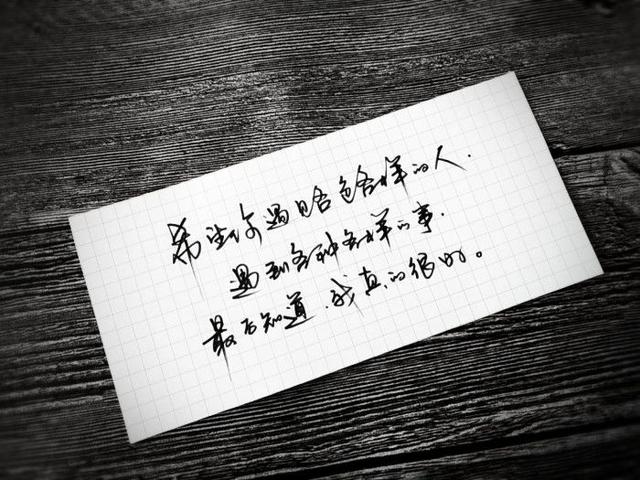 希望你遇见各色各样的人.
遇到各种各样的事.
最后知道,我真的很好。